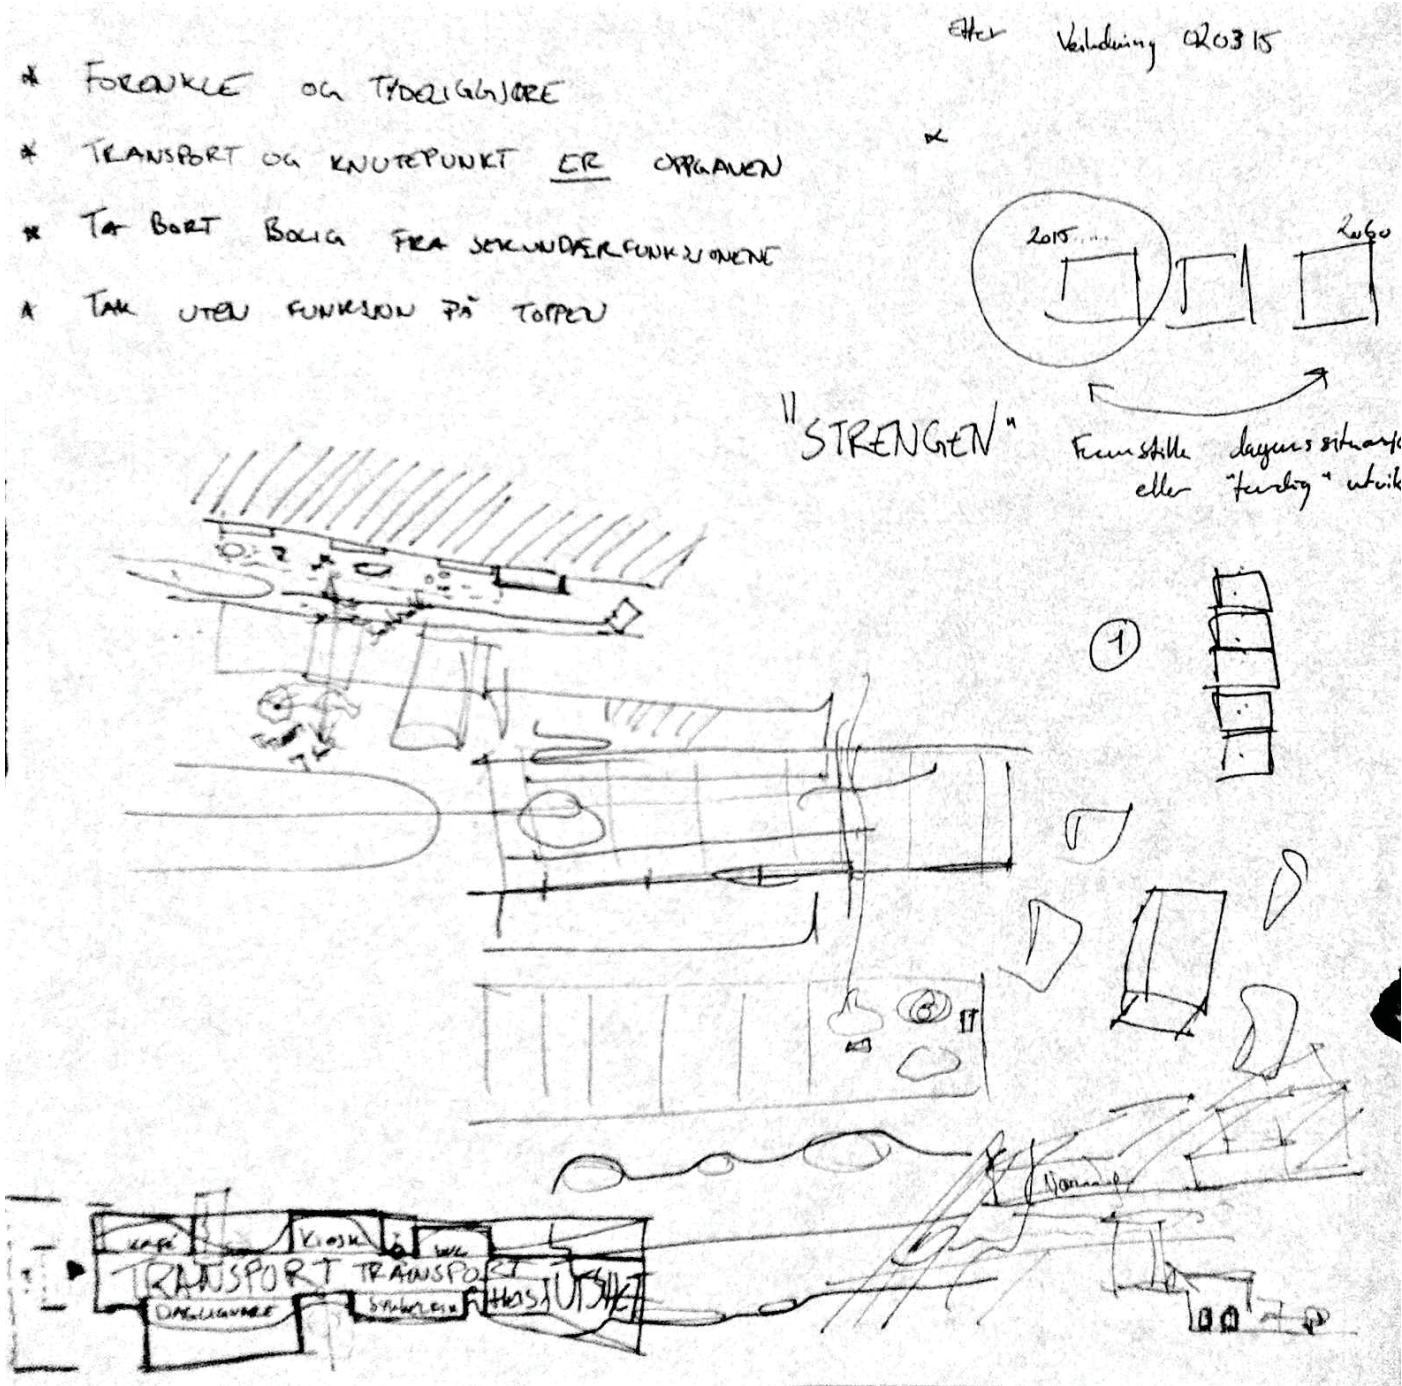 Etter Veiledning 020315
* FORENKLE OG TYDELIGGJØRE
* TRANSPORT OG KNUTEPUNKT ER OPPGAVEN
* TA BORT BOLIG FRA SEKUNDÆRFUNKSJONENE
* TAK UTEN FUNKSJON PÅ TOPPEN
*
2015..... 2060
"STRENGEN"
Fremstille dagens
eller "ferdig"
1
KAFÉ KIOSK WC
TRANSPORT TRANSPORT
DAGLIGVARE HEIS UTSIKT